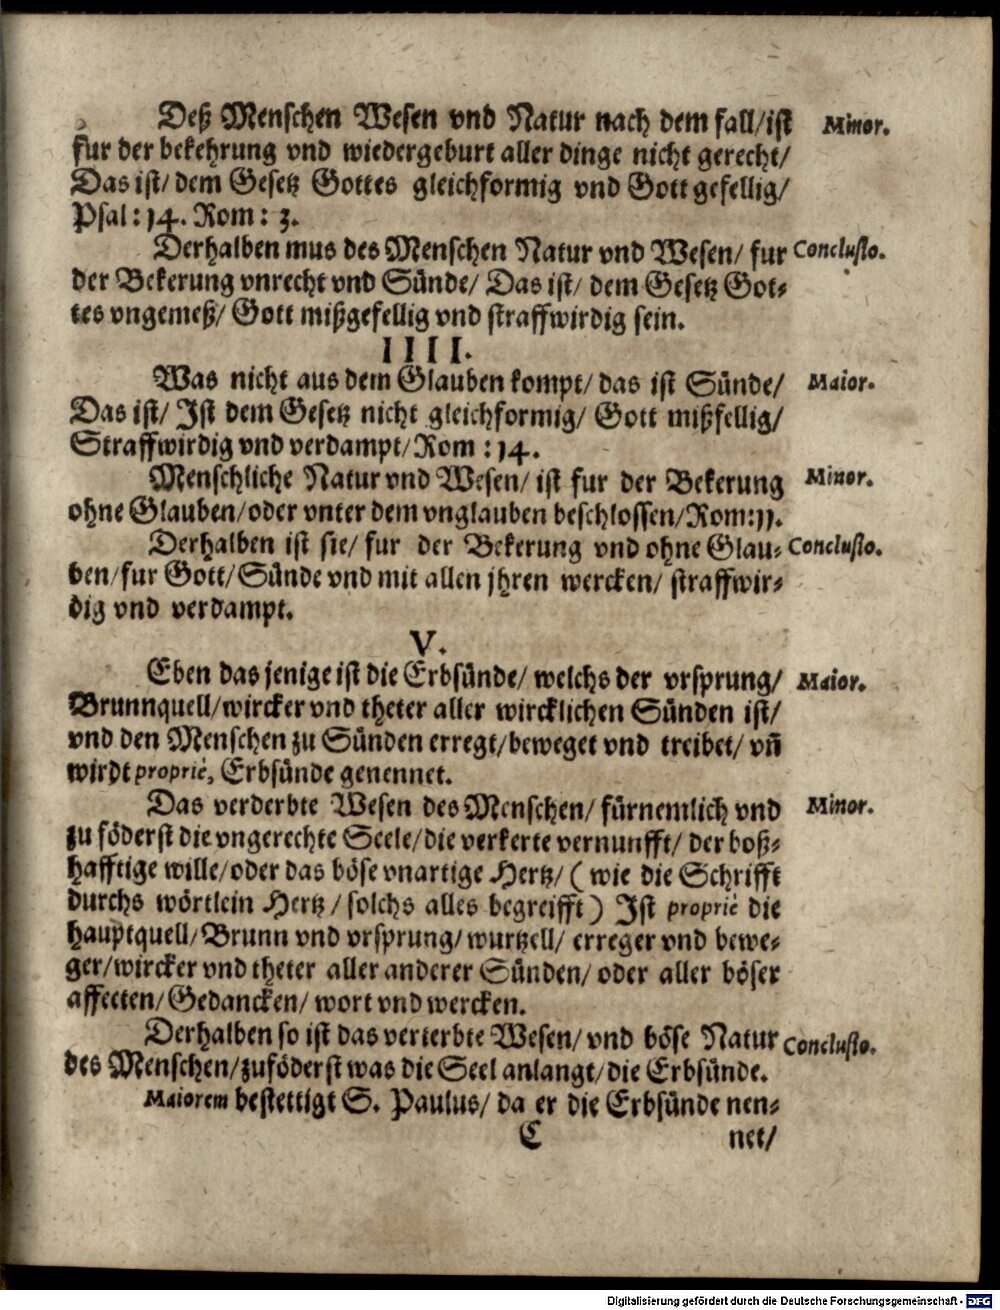 Deß Menschen Wesen vnd Natur nach dem fall/ist Minor.
fur der bekehrung vnd wiedergeburt aller dinge nicht gerecht/
Das ist/ dem Gesetz Gottes gleichformig vnd Gott gefellig/
Psal: 14. Rom: 3.
Derhalben mus des Menschen Natur vnd Wesen/ fur Conclusio.
der Bekerung vnrecht vnd Sünde/ Das ist/ dem Gesetz Got-
tes vngemeß/ Gott mißgefellig vnd straffwirdig sein.
IIII.
Was nicht aus dem Glauben kompt/ das ist Sünde/ Maior.
Das ist/ Ist dem Gesetz nicht gleichformig/ Gott mißfellig/
Straffwirdig vnd verdampt/ Rom: 14.
Menschliche Natur vnd Wesen/ ist fur der Bekerung Minor.
ohne Glauben/oder vnter dem vnglauben beschlossen/Rom:11.
Derhalben ist sie/ fur der Bekerung vnd ohne Glau- Conclusio.
ben/fur Gott/Sünde vnd mit allen jhren wercken/ straffwir-
dig vnd verdampt.
V.
Eben das jenige ist die Erbsünde/ welchs der vrsprung/ Maior.
Brunnquell/wircker vnd theter aller wircklichen Sünden ist/
vnd den Menschen zu Sünden erregt/beweget vnd treibet/ vñ
wirdt propriè, Erbsünde genennet.
Das verderbte Wesen des Menschen/ fürnemlich vnd Minor.
zu föderst die vngerechte Seele/die verkerte vernunfft/ der boß-
hafftige wille/oder das böse vnartige Hertz/ ( wie die Schrifft
durchs wörtlein Hertz/ solchs alles begreifft) Ist propriè die
hauptquell/Brunn vnd vrsprung/ wurtzell/ erreger vnd bewe-
ger/wircker vnd theter aller anderer Sünden/ oder aller böser
affecten/Gedancken/ wort vnd wercken.
Derhalben so ist das verterbte Wesen/ vnd böse Natur Conclusio.
des Menschen/zuföderst was die Seel anlangt/die Erbsünde.
Maiorem bestettigt S. Paulus/ da er die Erbsünde nen-
C net/
Digitalisierung gefördert durch die Deutsche Forschungsgemeinschaft - DFG